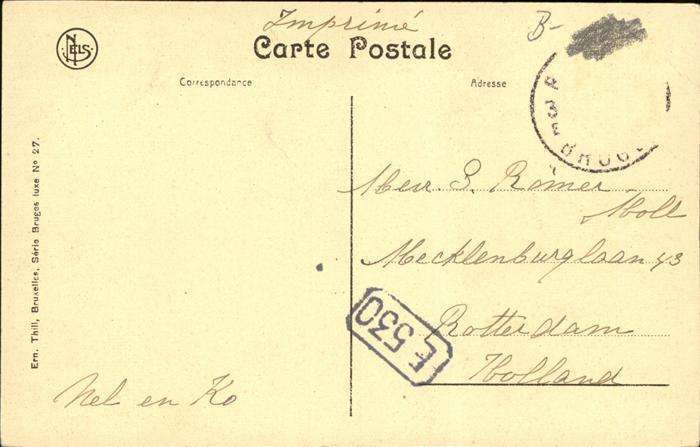 Imprimé
B-
NELS
Carte Postale
Correspondance
Adresse
BRUG
Ern. Thill, Bruxelles, Série Bruges luxe Nº 27.
Mevr. S. Römer
Moll
Mecklenburglaan 43
Rotterdam
Holland
E 530
Nel en Ko